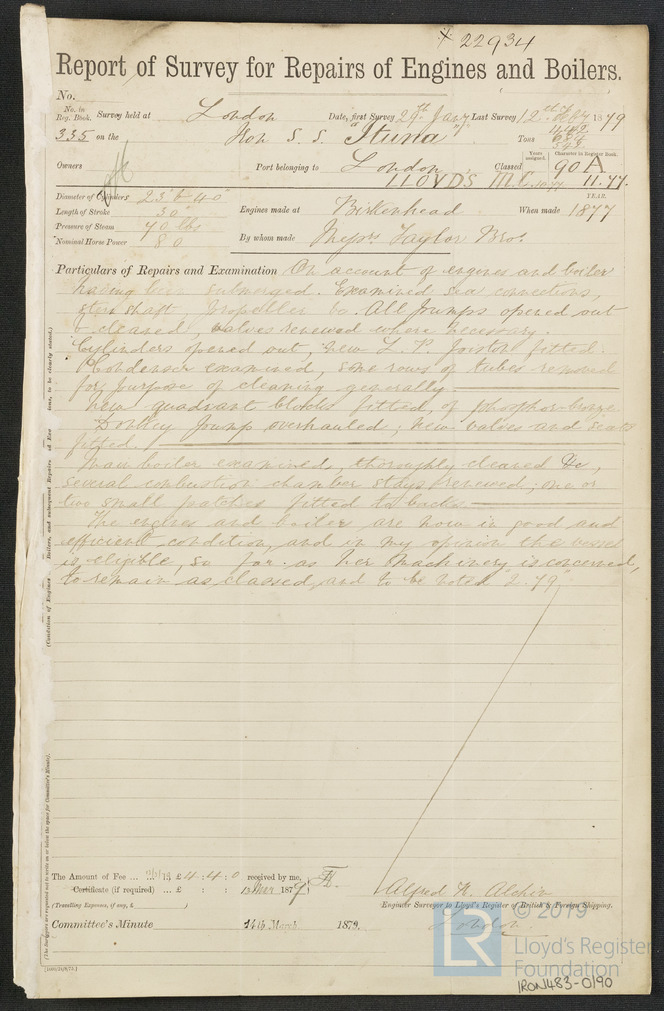 22934
Report of Survey for Repairs of Engines and Boilers.
No.
No. in Reg. Book. Survey held at London Date, first Survey 29th Jany Last Survey 12th 1879
335 on the Iron S. S. "Ituna" Tons
Owners Port belonging to London Classed Years assigned. Character in Register Book. 90 A
LLOYDS M.C. 11.77.
YEAR.
Diameter of Cylinders 23" & 40"
Length of Stroke 30" Engines made at Birkenhead When made 1877
Pressure of Steam 70 lbs
Nominal Horse Power 80 By whom made Messrs Taylor Bros.
Particulars of Repairs and Examination On account of engines and boiler
having been submerged. Examined sea connections,
stern shaft, propeller &c. All pumps opened out
& cleaned, valves renewed where necessary.
Cylinders opened out, new L. P. piston fitted.
Condenser examined, some rows of tubes removed
for purpose of cleaning generally.
New quadrant blocks fitted, of phosphor bronze
Donkey pump overhauled; new valves and seats
fitted
Main boiler examined, thoroughly cleaned &c,
several combustion chamber stays renewed; one or
two small patches fitted to backs.
The engines and boiler are now in good and
efficient condition, and in my opinion the vessel
is eligible, so far as her machinery is concerned,
to remain as classed, and to be noted "2.79"
The Amount of Fee ... £4 : 4 : 0 received by me,
Certificate (if required) ... £ : : 13 Mar 1879
(Travelling Expenses, if any, £ )
Engineer Surveyor to Lloyd's Register of British & Foreign Shipping.
Committee's Minute March 1879.
London
© 2019
LR
Lloyd's Register
Foundation
IRON483-0190